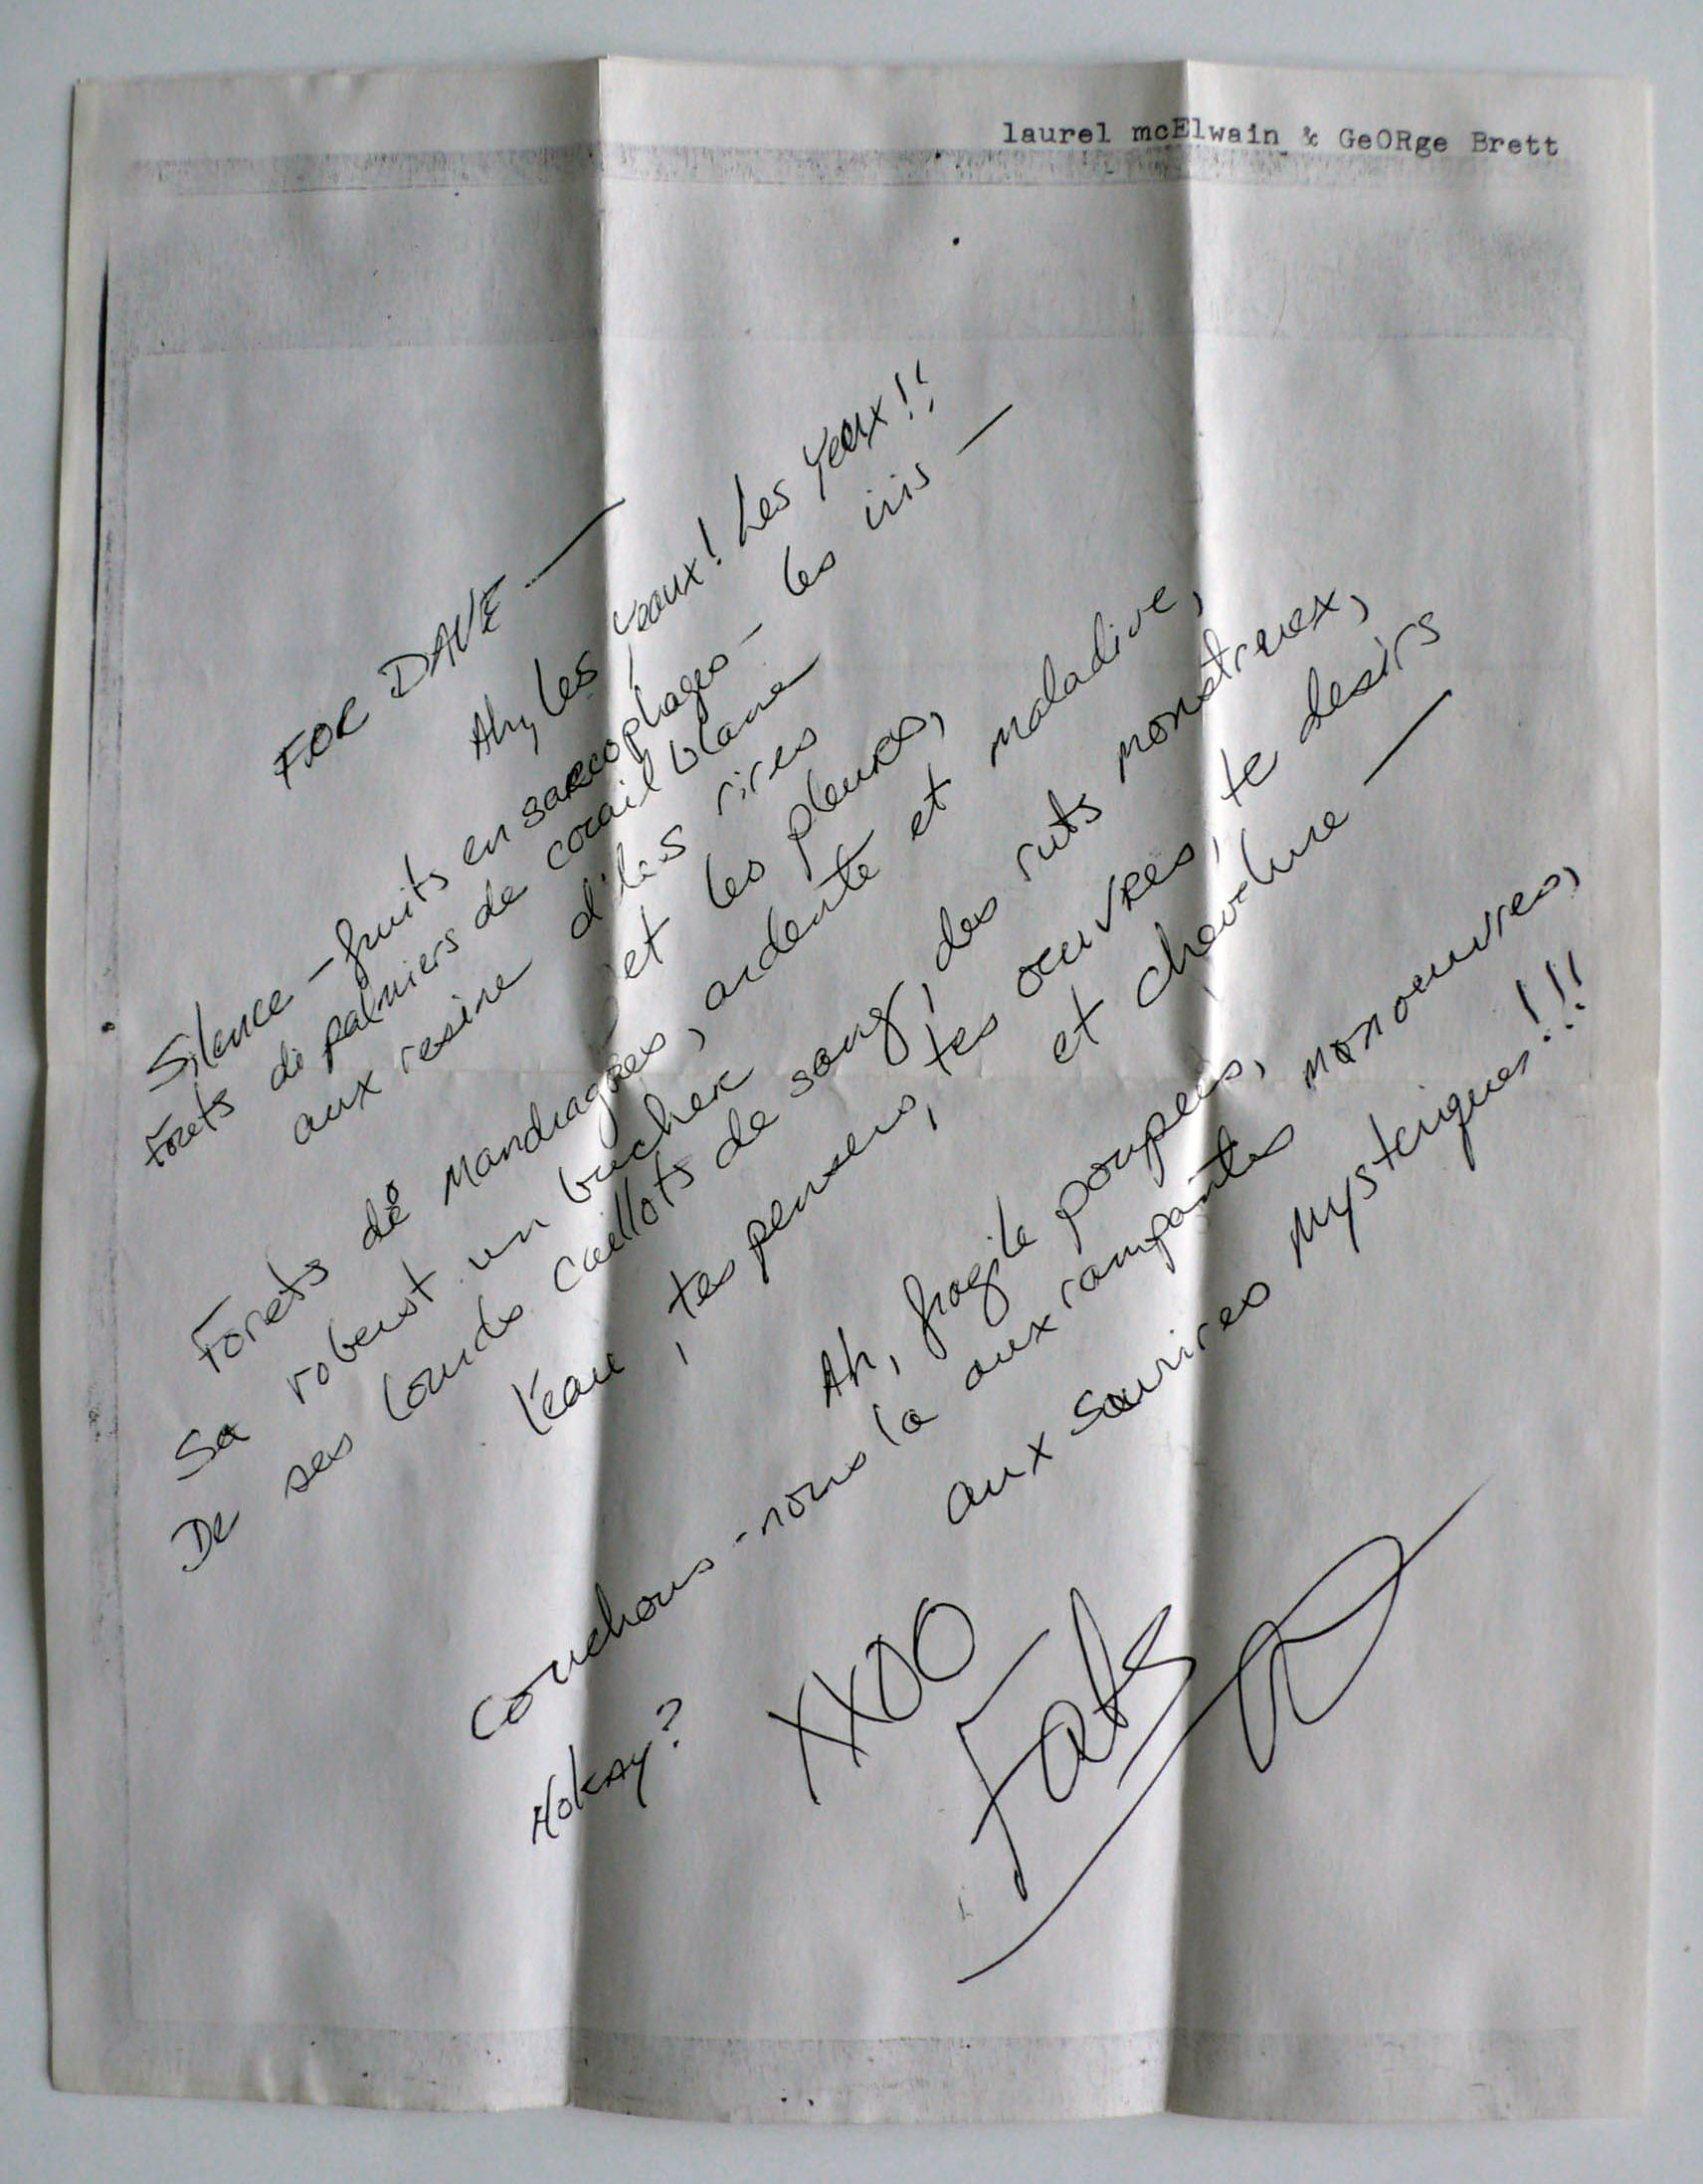 laurel mcElwain & GeORge Brett
FOR DAVE —
Ah, les yeaux! Les Yeux!!
Silence - fruits en sarcophages - les iris —
Forets de palmiers de corail blanc
aux resine d'iles rires
et les pleures,
Forets de mandragores, ardente et maladive,
Sa robe est un bucher
De ses lourds caillots de sang, des ruts monstreuex,
L'eau, tes pensers, tes oeuvres, te desirs
et chevelure —
Ah, fragile poupees,
Couchons-nous la aux rampantes monoeuvres,
aux sourires mysteriques!!!
Hokay?
XXOO
Fats